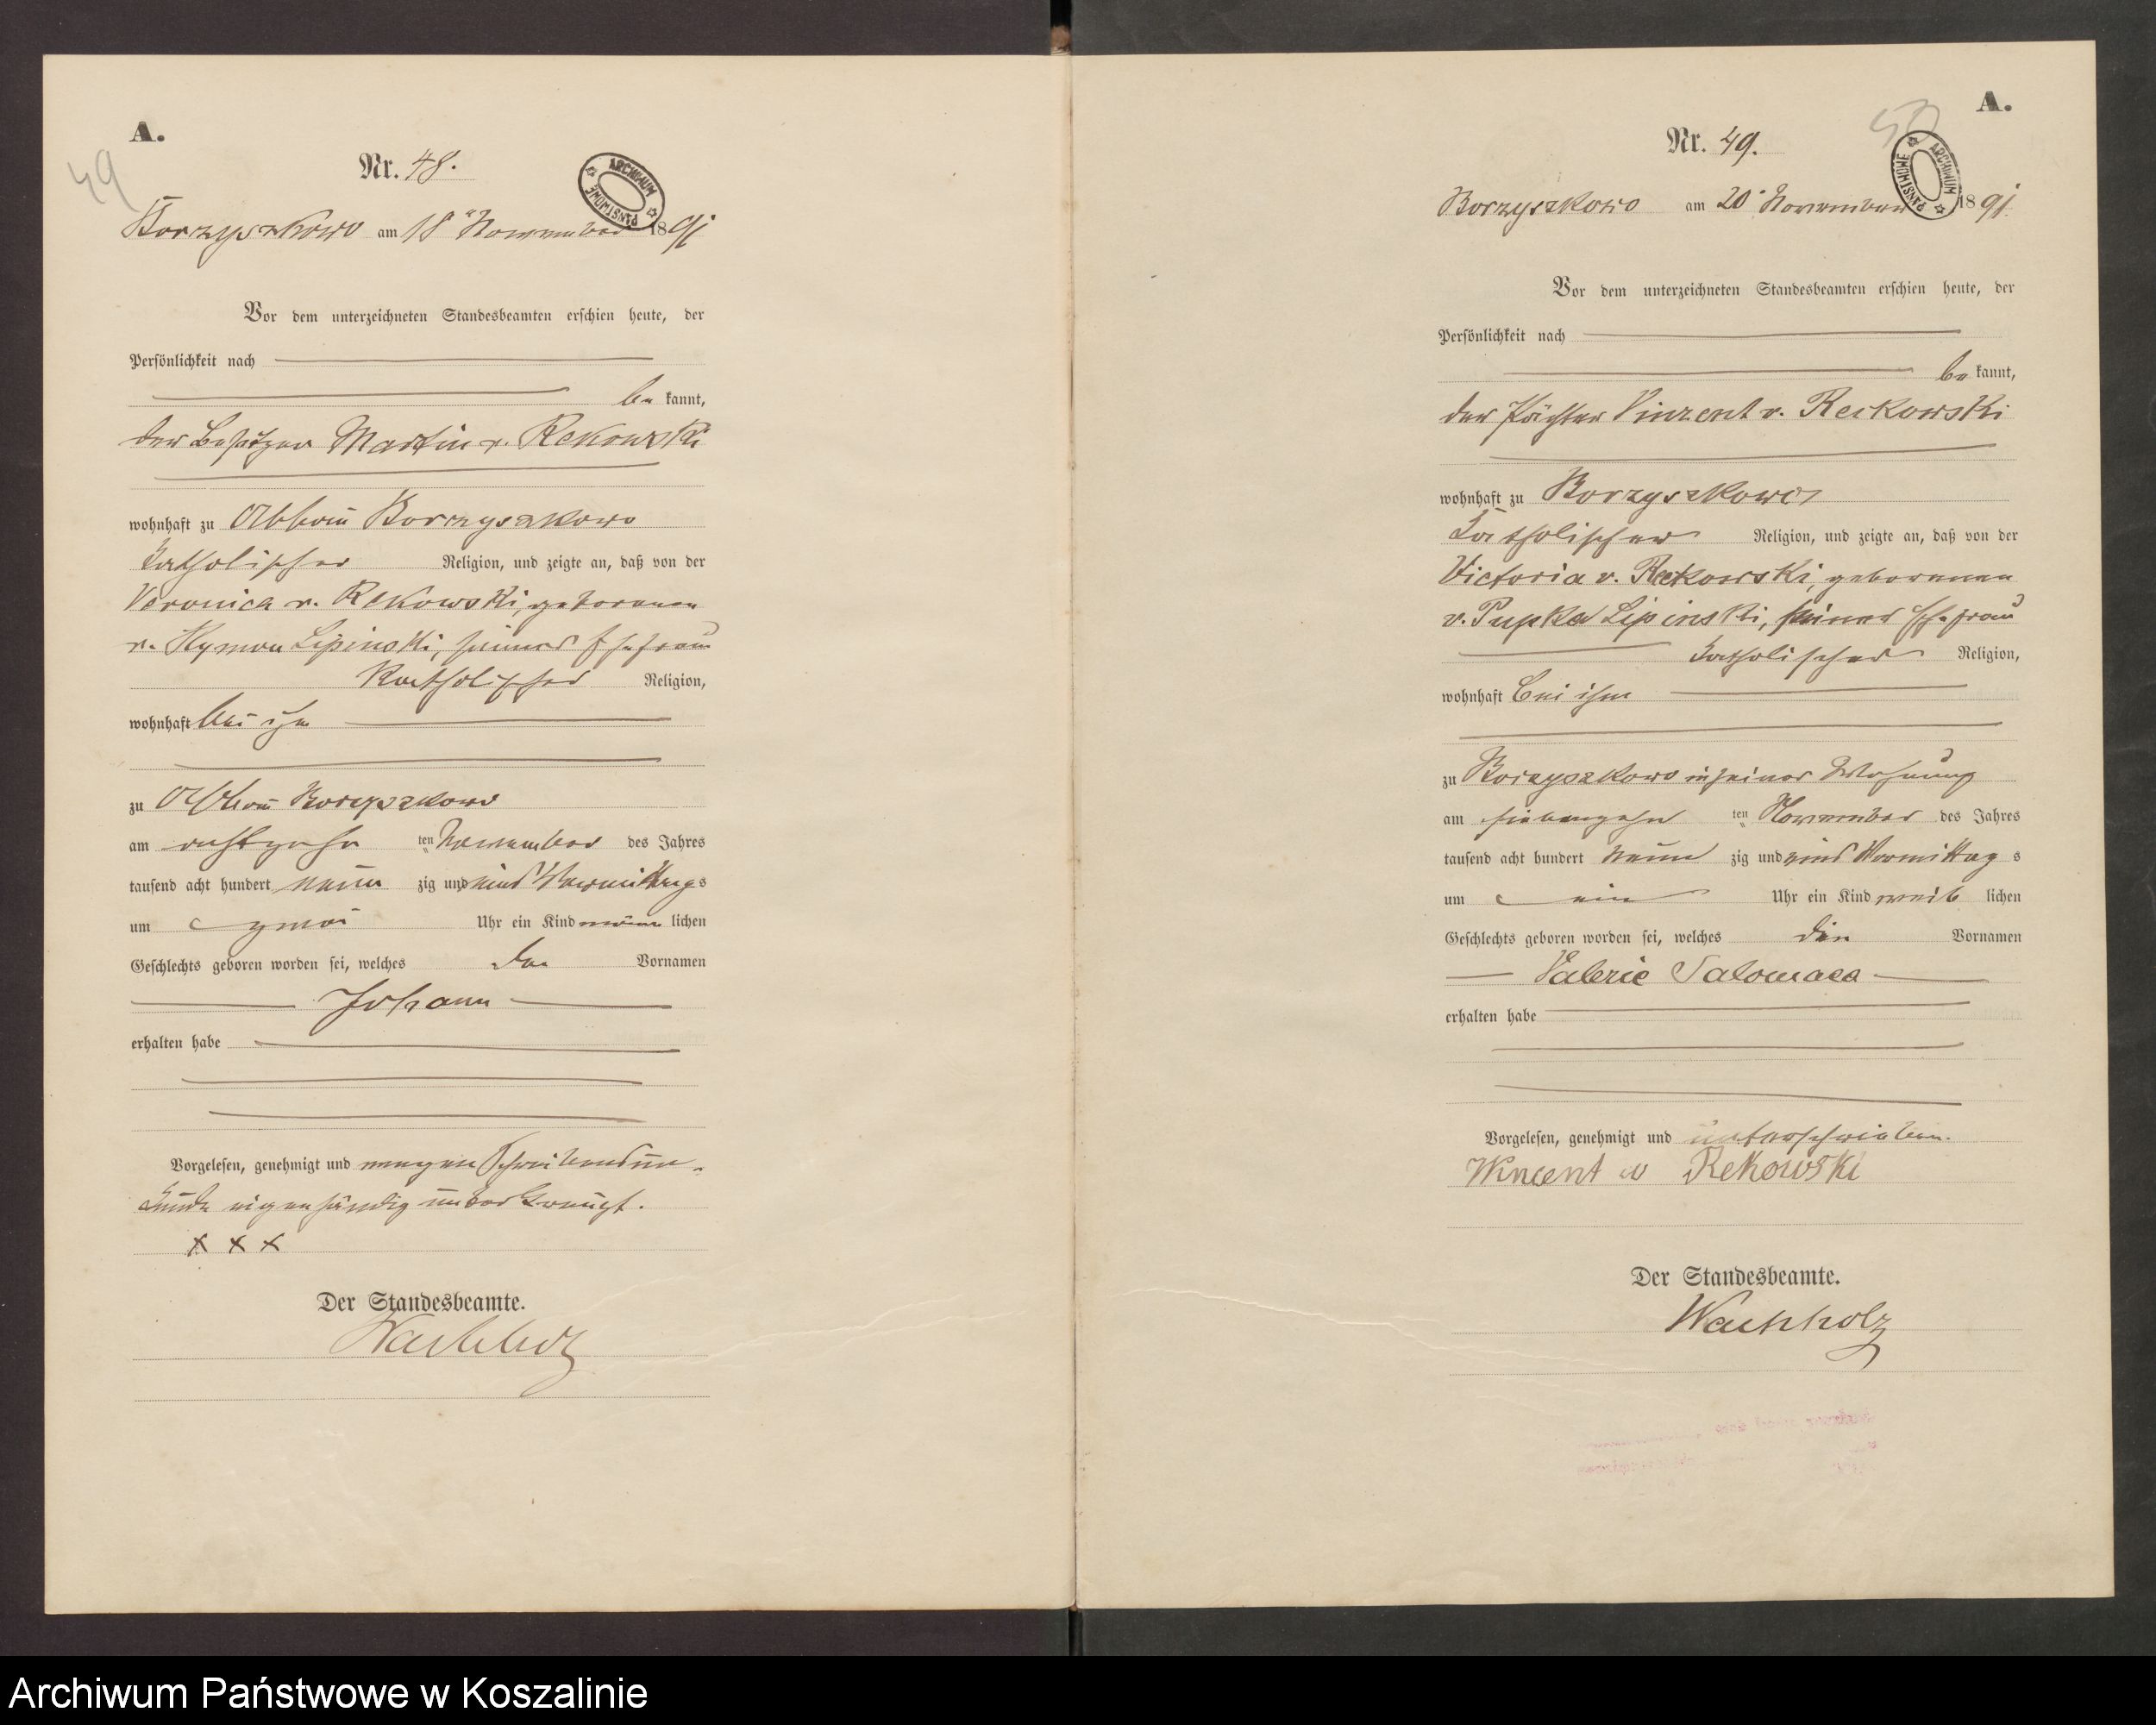 A.
49
Nr. 48.
ARCHIWUM PAŃSTWOWE
Borzyszkowo am 18ten November 1891
Vor dem unterzeichneten Standesbeamten erschien heute, der
Persönlichkeit nach
be kannt,
der Besitzer Martin v. Rekowski
wohnhaft zu Abbau Borzyszkowo
katholischer Religion, und zeigte an, daß von der
Veronica v. Rekowski, geborenen
v. Kymon Lipinski, seiner Ehefrau
katholischer Religion,
wohnhaft bei ihm
zu Abbau Borzyszkowo
am achtzehn ten November des Jahres
tausend acht hundert neun zig und eins Vormittags
um zwei Uhr ein Kind männ lichen
Geschlechts geboren worden sei, welches den Vornamen
Johann
erhalten habe
Vorgelesen, genehmigt und wegen Schreibensun-
kunde eigenhändig unterkreuzt.
x x x
Der Standesbeamte.
Wachholz
A.
50
Nr. 49.
ARCHIWUM PAŃSTWOWE
Borzyszkowo am 20ten November 1891.
Vor dem unterzeichneten Standesbeamten erschien heute, der
Persönlichkeit nach
be kannt,
der Pächter Vinzent v. Reckowski
wohnhaft zu Borzyszkowo
katholischer Religion, und zeigte an, daß von der
Victoria v. Reckowski, geborenen
v. Pupka Lipinski, seiner Ehefrau
katholischer Religion,
wohnhaft bei ihm
zu Borzyszkowo in seiner Wohnung
am siebenzehn ten November des Jahres
tausend acht hundert neun zig und eins Vormittag s
um ein Uhr ein Kind weib lichen
Geschlechts geboren worden sei, welches die Vornamen
Valerie Salomaea
erhalten habe
Vorgelesen, genehmigt und unterschrieben.
Wincent v Rekowski
Der Standesbeamte.
Wachholz
Archiwum Państwowe w Koszalinie